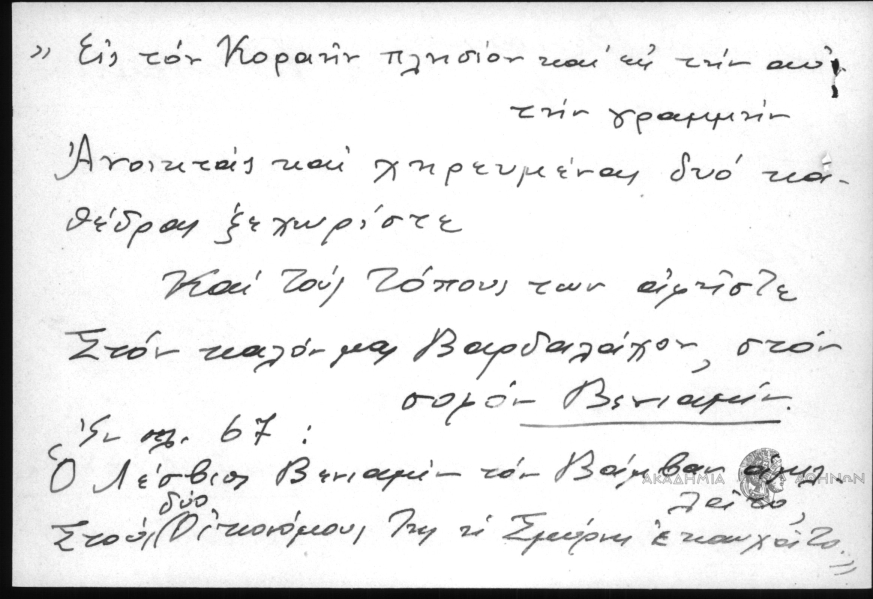 » Εἰς τόν Κοραῆν πλησίον καί εἰς τήν αὐ-
τήν γραμμήν
Ἀνοικτάς καί χηρευμένας δυό κα-
θέδρας ξεχωρίστε
Καί τούς τόπους των ἀφῆστε
Στόν καλόν μας Βαρδαλάχον, στόν
σοφόν Βενιαμίν.
Ἐν σελ. 67 :
Ὁ Λέσβιος Βενιαμίν τόν Βάμβαν
λεῖτο,
δύο
Στούς Οἰκονόμους της ἡ Σμύρνη ἐκαυχᾶτο. »
ΑΚΑΔΗΜΙΑ ΑΘΗΝΩΝ